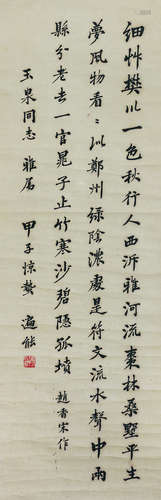 細艸樊川一色秋行人西泝雅河流棗林桑墅平生
夢風物看看似鄭州綠陰濃處是符文流水聲中兩
縣分老去一官晁子止竹寒沙碧隱孤墳 趙香宋作
玉泉同志雅屬 甲子惊蟄 遍能